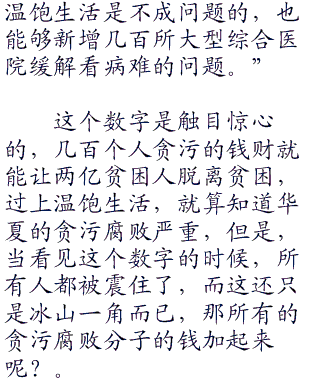 温饱生活是不成问题的，也
能够新增几百所大型综合医
院缓解看病难的问题。”
这个数字是触目惊心
的，几百个人贪污的钱财就
能让两亿贫困人脱离贫困，
过上温饱生活，就算知道华
夏的贪污腐败严重，但是，
当看见这个数字的时候，所
有人都被震住了，而这还只
是冰山一角而已，那所有的
贪污腐败分子的钱加起来
呢？。